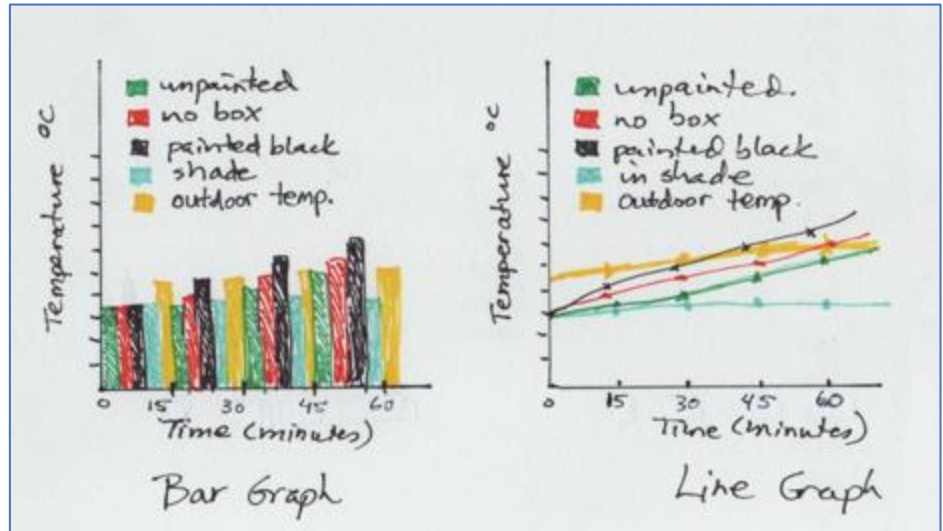 Temperature °C
unpainted
no box
painted black
shade
outdoor temp.
0 15 30 45 60
Time (minutes)
Bar Graph
Temperature °C
unpainted.
no box
painted black
in shade
outdoor temp.
0 15 30 45 60
Time (minutes)
Line Graph